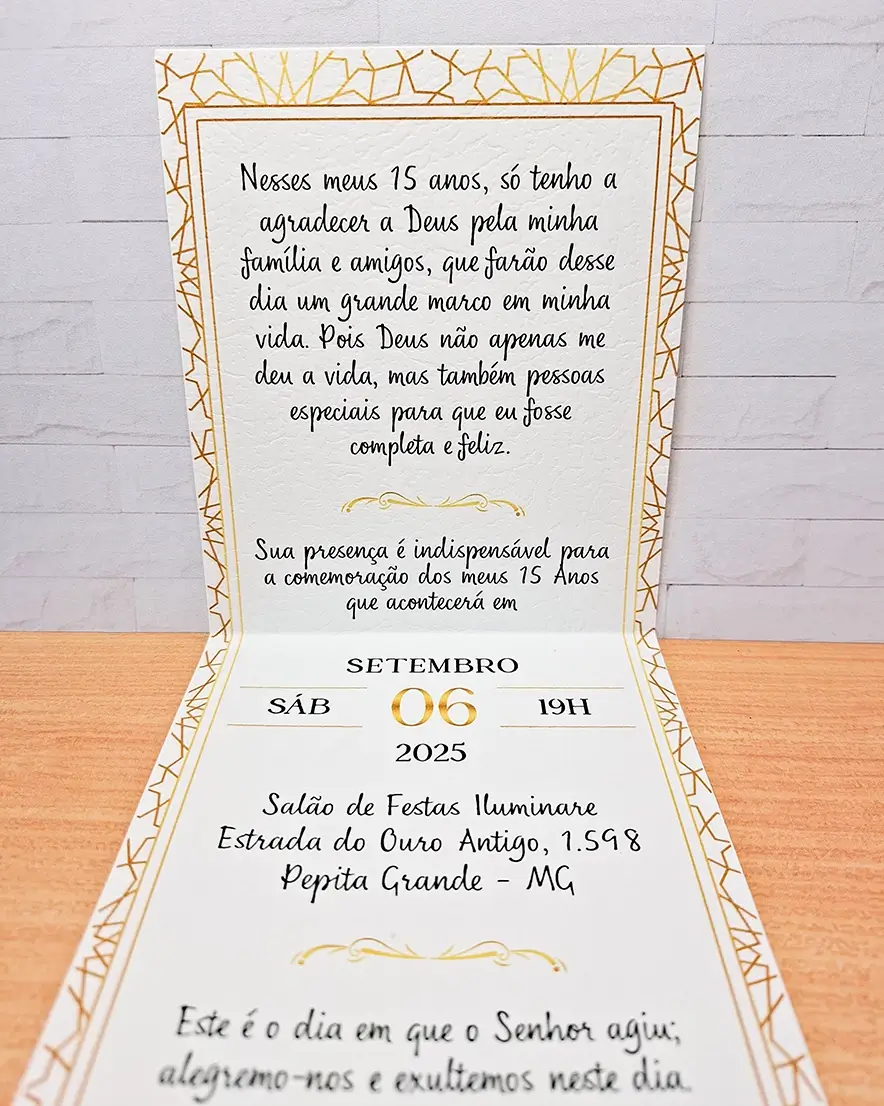 Nesses meus 15 anos, só tenho a
agradecer a Deus pela minha
família e amigos, que farão desse
dia um grande marco em minha
vida. Pois Deus não apenas me
deu a vida, mas também pessoas
especiais para que eu fosse
completa e feliz.
Sua presença é indispensável para
a comemoração dos meus 15 Anos
que acontecerá em
SETEMBRO
SÁB 06 19H
2025
Salão de Festas Iluminare
Estrada do Ouro Antigo, 1.598
Pepita Grande - MG
Este é o dia em que o Senhor agiu;
alegremo-nos e exultemos neste dia.